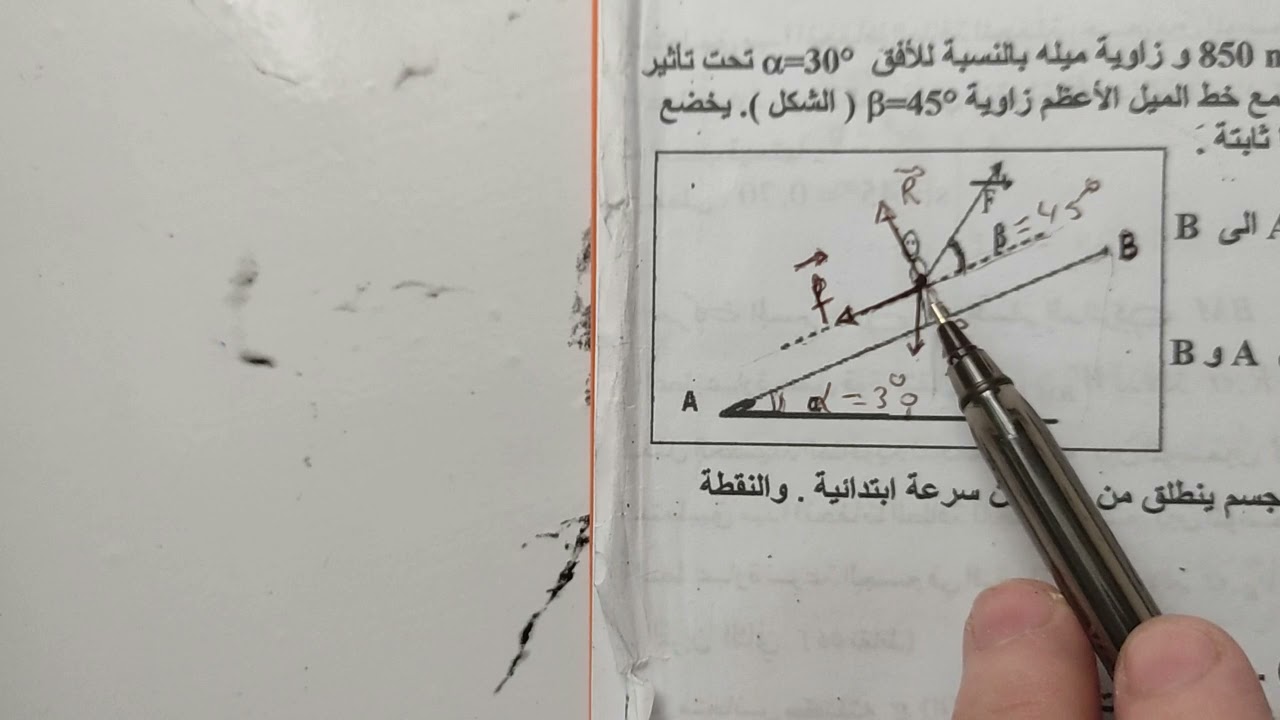 850 و زاوية ميله بالنسبة للأفق α=30° تحت تأثير
مع خط الميل الأعظم زاوية β=45° ( الشكل ). يخضع
ثابتة :
R
F
β = 45°
B
f
A
α = 30
الى B
A و B
جسم ينطلق من سرعة ابتدائية . والنقطة